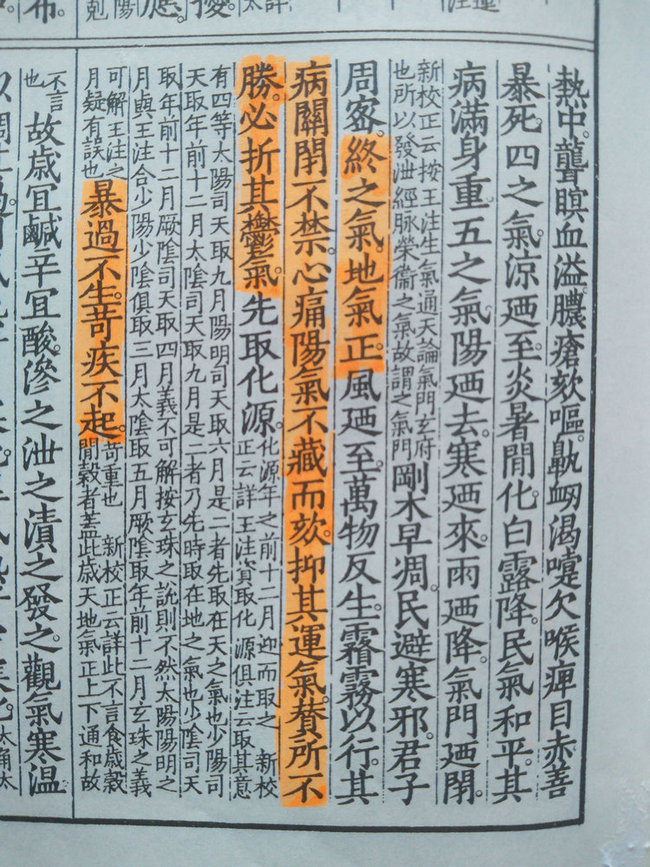 熱中。聾瞑血溢。膿瘡欬嘔。鼽衄渴嚏欠喉痺目赤善
暴死。四之氣。涼廼至。炎暑間化。白露降。民氣和平。其
病滿身重。五之氣。陽廼去。寒廼來。雨廼降。氣門廼閉。
新校正云按王注生氣通天論氣門玄府
也所以發泄經脉榮衞之氣故謂之氣門
剛木早凋。民避寒邪。君子
周密。終之氣。地氣正。風廼至。萬物反生。霜霧以行。其
病關閉不禁。心痛陽氣不藏而欬。抑其運氣。賛所不
勝。必折其鬱氣。先取化源。
化源年之前十二月迎而取之 新校
正云詳王注資取化源俱注云取其意
有四等太陽司天取九月陽明司天取六月是二者先取在天之氣也少陽司
天取年前十二月太陰司天取九月是二者乃先時取在地之氣也少陰司天
取年前十二月厥陰司天取四月義不可解按玄珠之說則不然太陽陽明之
月與王注合少陽少陰俱取三月太陰取五月厥陰取年前十二月玄珠之義
可解王注之
月疑有誤也
暴過不生。苛疾不起。
苛重也 新校正云詳此不言食歲穀
間穀者蓋此歲天地氣正上下通和故
不言
也
故歲宜鹹辛宜酸。滲之泄之漬之發之。觀氣寒溫